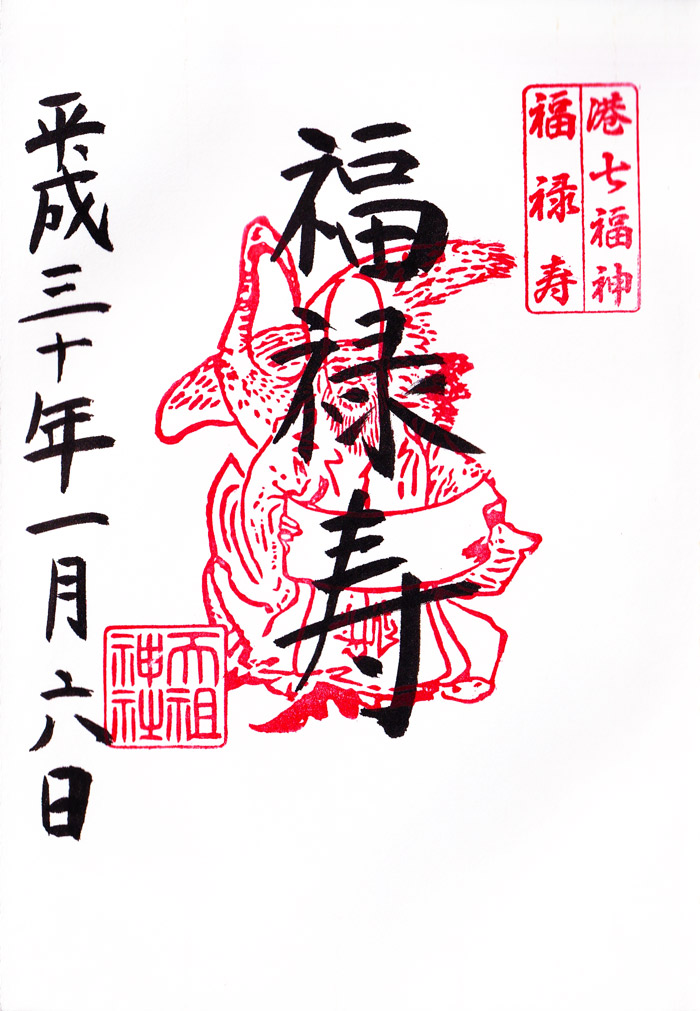 港七福神
福禄寿
福禄寿
天祖
神社
平成三十年一月六日